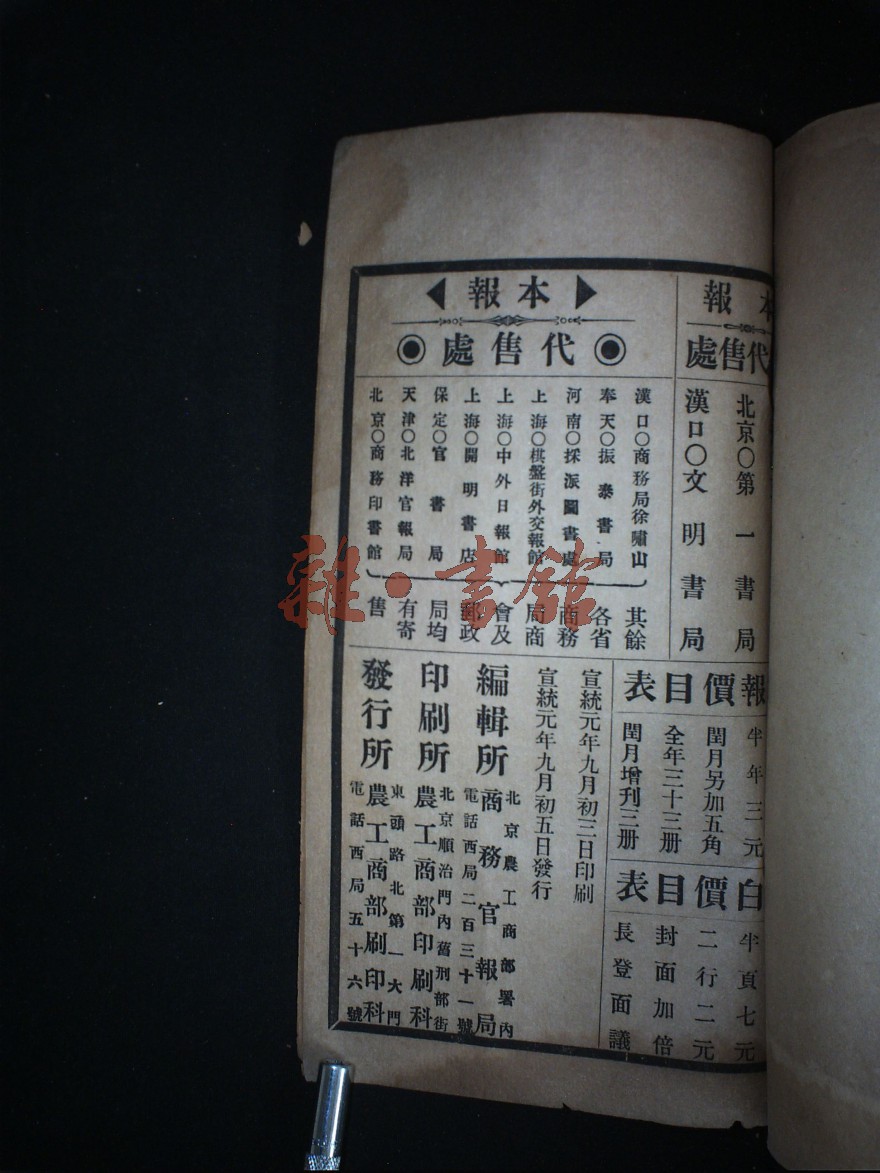 本報
代售處
北京○第一書局
漢口○文明書局
報價目表
半年三元
閏月另加五角
全年三十三册
閏月增刊三册
白價目表
半頁七元
二行二元
封面加倍
長登面議
本報
代售處
漢口○商務局徐嘯山
奉天○振泰書局
河南○採派圖書處
上海○棋盤街外交報館
上海○中外日報館
上海○開明書店
保定○官書局
天津○北洋官報局
北京○商務印書館
其餘
各省
商務
局商
會及
郵政
局均
有寄
售
宣統元年九月初三日印刷
宣統元年九月初五日發行
編輯所
北京農工商部署內
商務官報局
電話西局二百三十一號
印刷所
北京順治門內舊刑部街
農工商部印刷科
發行所
東頭路北第一大門
農工商部刷印科
電話西局五十六號
雜·書館